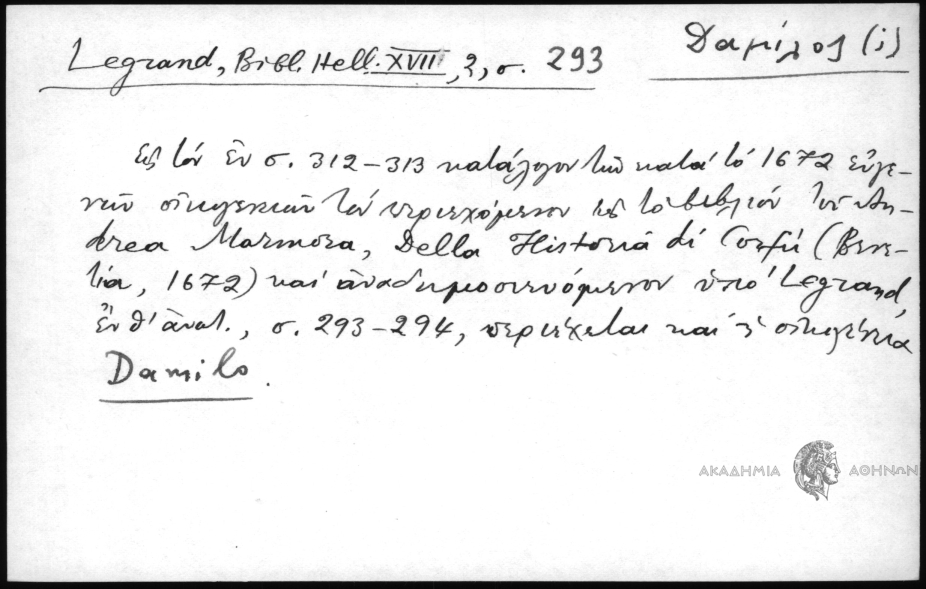 Legrand, Bibl. Hell. XVII, 2, σ. 293
Δαμίλος (ι)
Εἰς τὸν ἐν σ. 312-313 κατάλογον τῶν κατὰ τὸ 1672 εὐγε-
νῶν οἰκογενειῶν τὸν περιεχόμενον εἰς τὸ βιβλίον τοῦ An-
drea Marmora, Della Historia di Corfù (Βενε-
τία, 1672) καὶ ἀναδημοσιευόμενον ὑπὸ Legrand,
ἔνθ' ἀνωτ., σ. 293-294, περιέχεται καὶ ἡ οἰκογένεια
Damilo.
ΑΚΑΔΗΜΙΑ ΑΘΗΝΩΝ